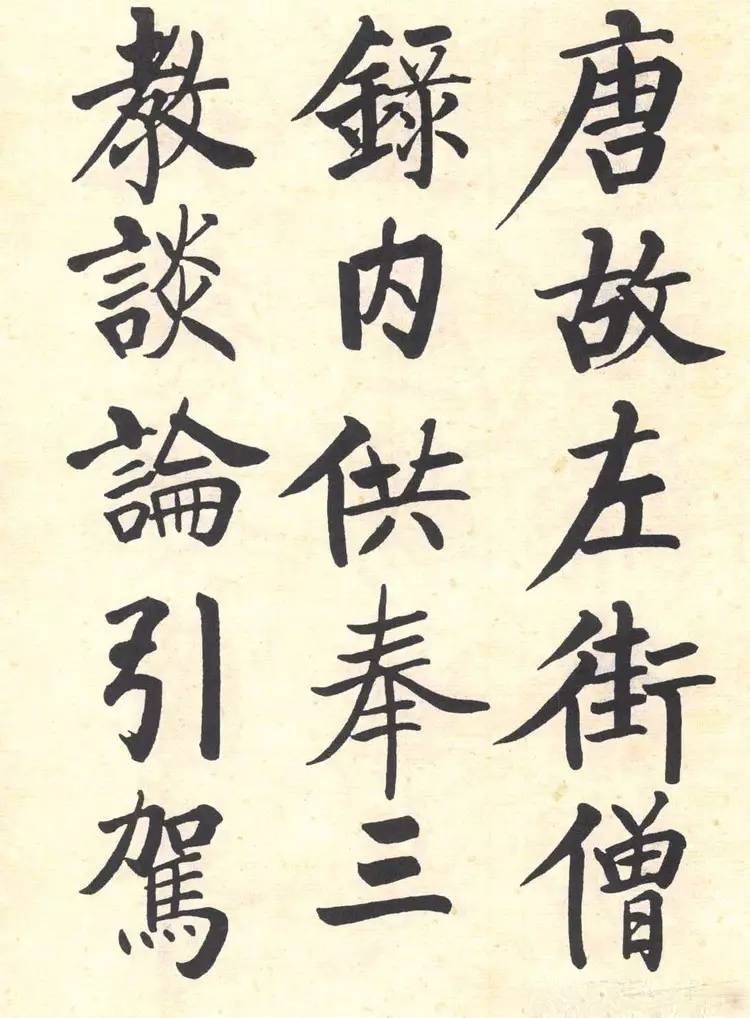 唐故左街僧
録内供奉三
教談論引駕